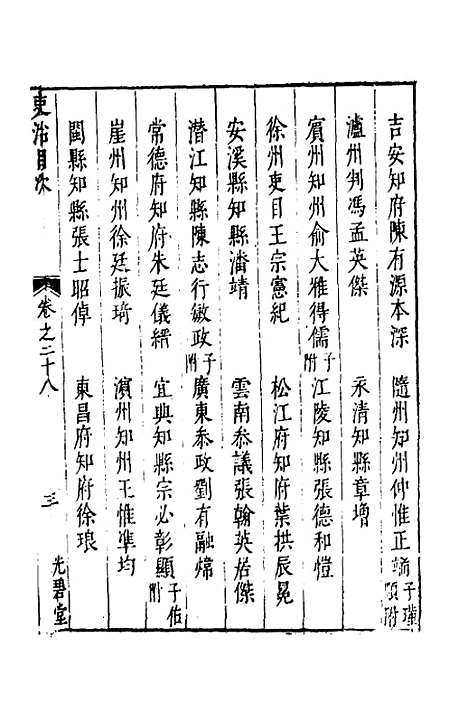 吉安知府陳有源本深　隨州知州仲惟正端子瑾頎附
瀘州判馮孟英傑　永清知縣章增
賓州知州俞大雅得儒子附　江陵知縣張德和愷
徐州吏目王宗憲紀　松江府知府葉拱辰冕
安溪縣知縣潘靖　雲南叅議張翰英居傑
潛江知縣陳志行敏政子附　廣東叅政劉有融㷂
常德府知府朱廷儀縉　宜興知縣宗必彰顯子佑附
崖州知州徐廷振琦　濱州知州王惟準均
閩縣知縣張士昭倬　東昌府知府徐琅
吏治目次　卷之二十八　三　光碧堂